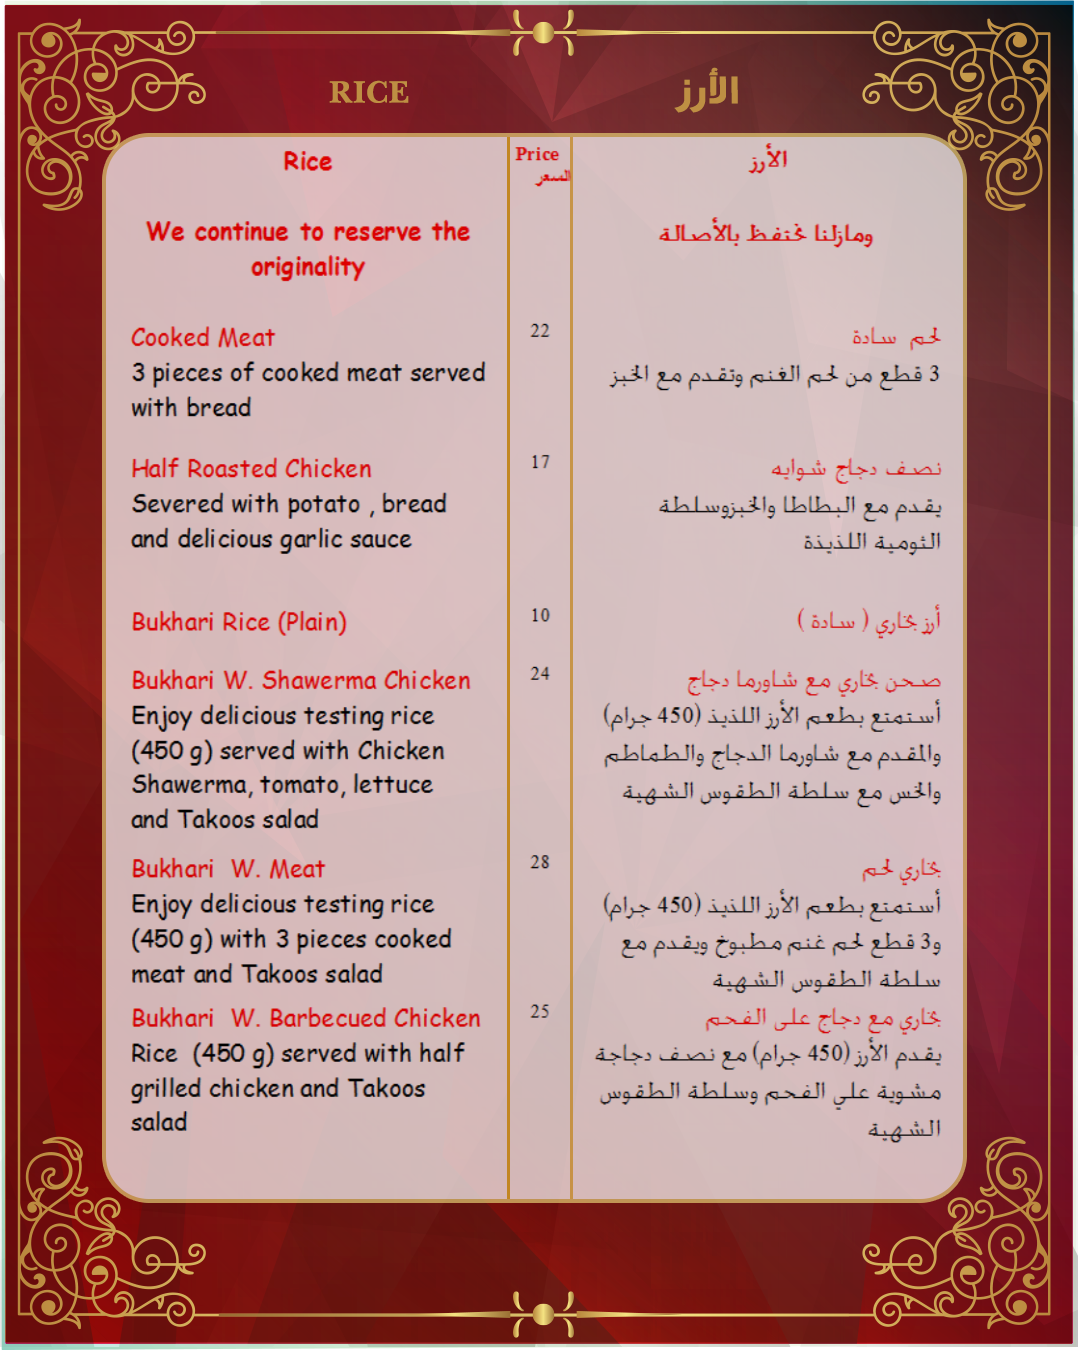 RICE
الأرز
Rice
Price
السعر
الأرز
We continue to reserve the
originality
ومازلنا نحتفظ بالأصالة
Cooked Meat
3 pieces of cooked meat served
with bread
22
لحم سادة
3 قطع من لحم الغنم وتقدم مع الخبز
Half Roasted Chicken
Severed with potato , bread
and delicious garlic sauce
17
نصف دجاج شوايه
يقدم مع البطاطا والخبزوسلطة
الثومية اللذيذة
Bukhari Rice (Plain)
10
أرز بخاري ( سادة )
Bukhari W. Shawerma Chicken
Enjoy delicious testing rice
(450 g) served with Chicken
Shawerma, tomato, lettuce
and Takoos salad
24
صحن بخاري مع شاورما دجاج
أستمتع بطعم الأرز اللذيذ (450 جرام)
والمقدم مع شاورما الدجاج والطماطم
والخس مع سلطة الطقوس الشهية
Bukhari W. Meat
Enjoy delicious testing rice
(450 g) with 3 pieces cooked
meat and Takoos salad
28
بخاري لحم
أستمتع بطعم الأرز اللذيذ (450 جرام)
و3 قطع لحم غنم مطبوخ ويقدم مع
سلطة الطقوس الشهية
Bukhari W. Barbecued Chicken
Rice (450 g) served with half
grilled chicken and Takoos
salad
25
بخاري مع دجاج على الفحم
يقدم الأرز (450 جرام) مع نصف دجاجة
مشوية علي الفحم وسلطة الطقوس
الشهية